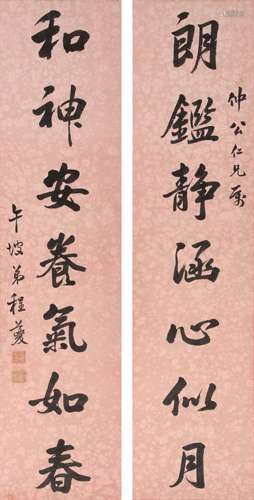 朗鑑静涵心似月
仲公仁兄属
和神安養氣如春
午坡弟程夔